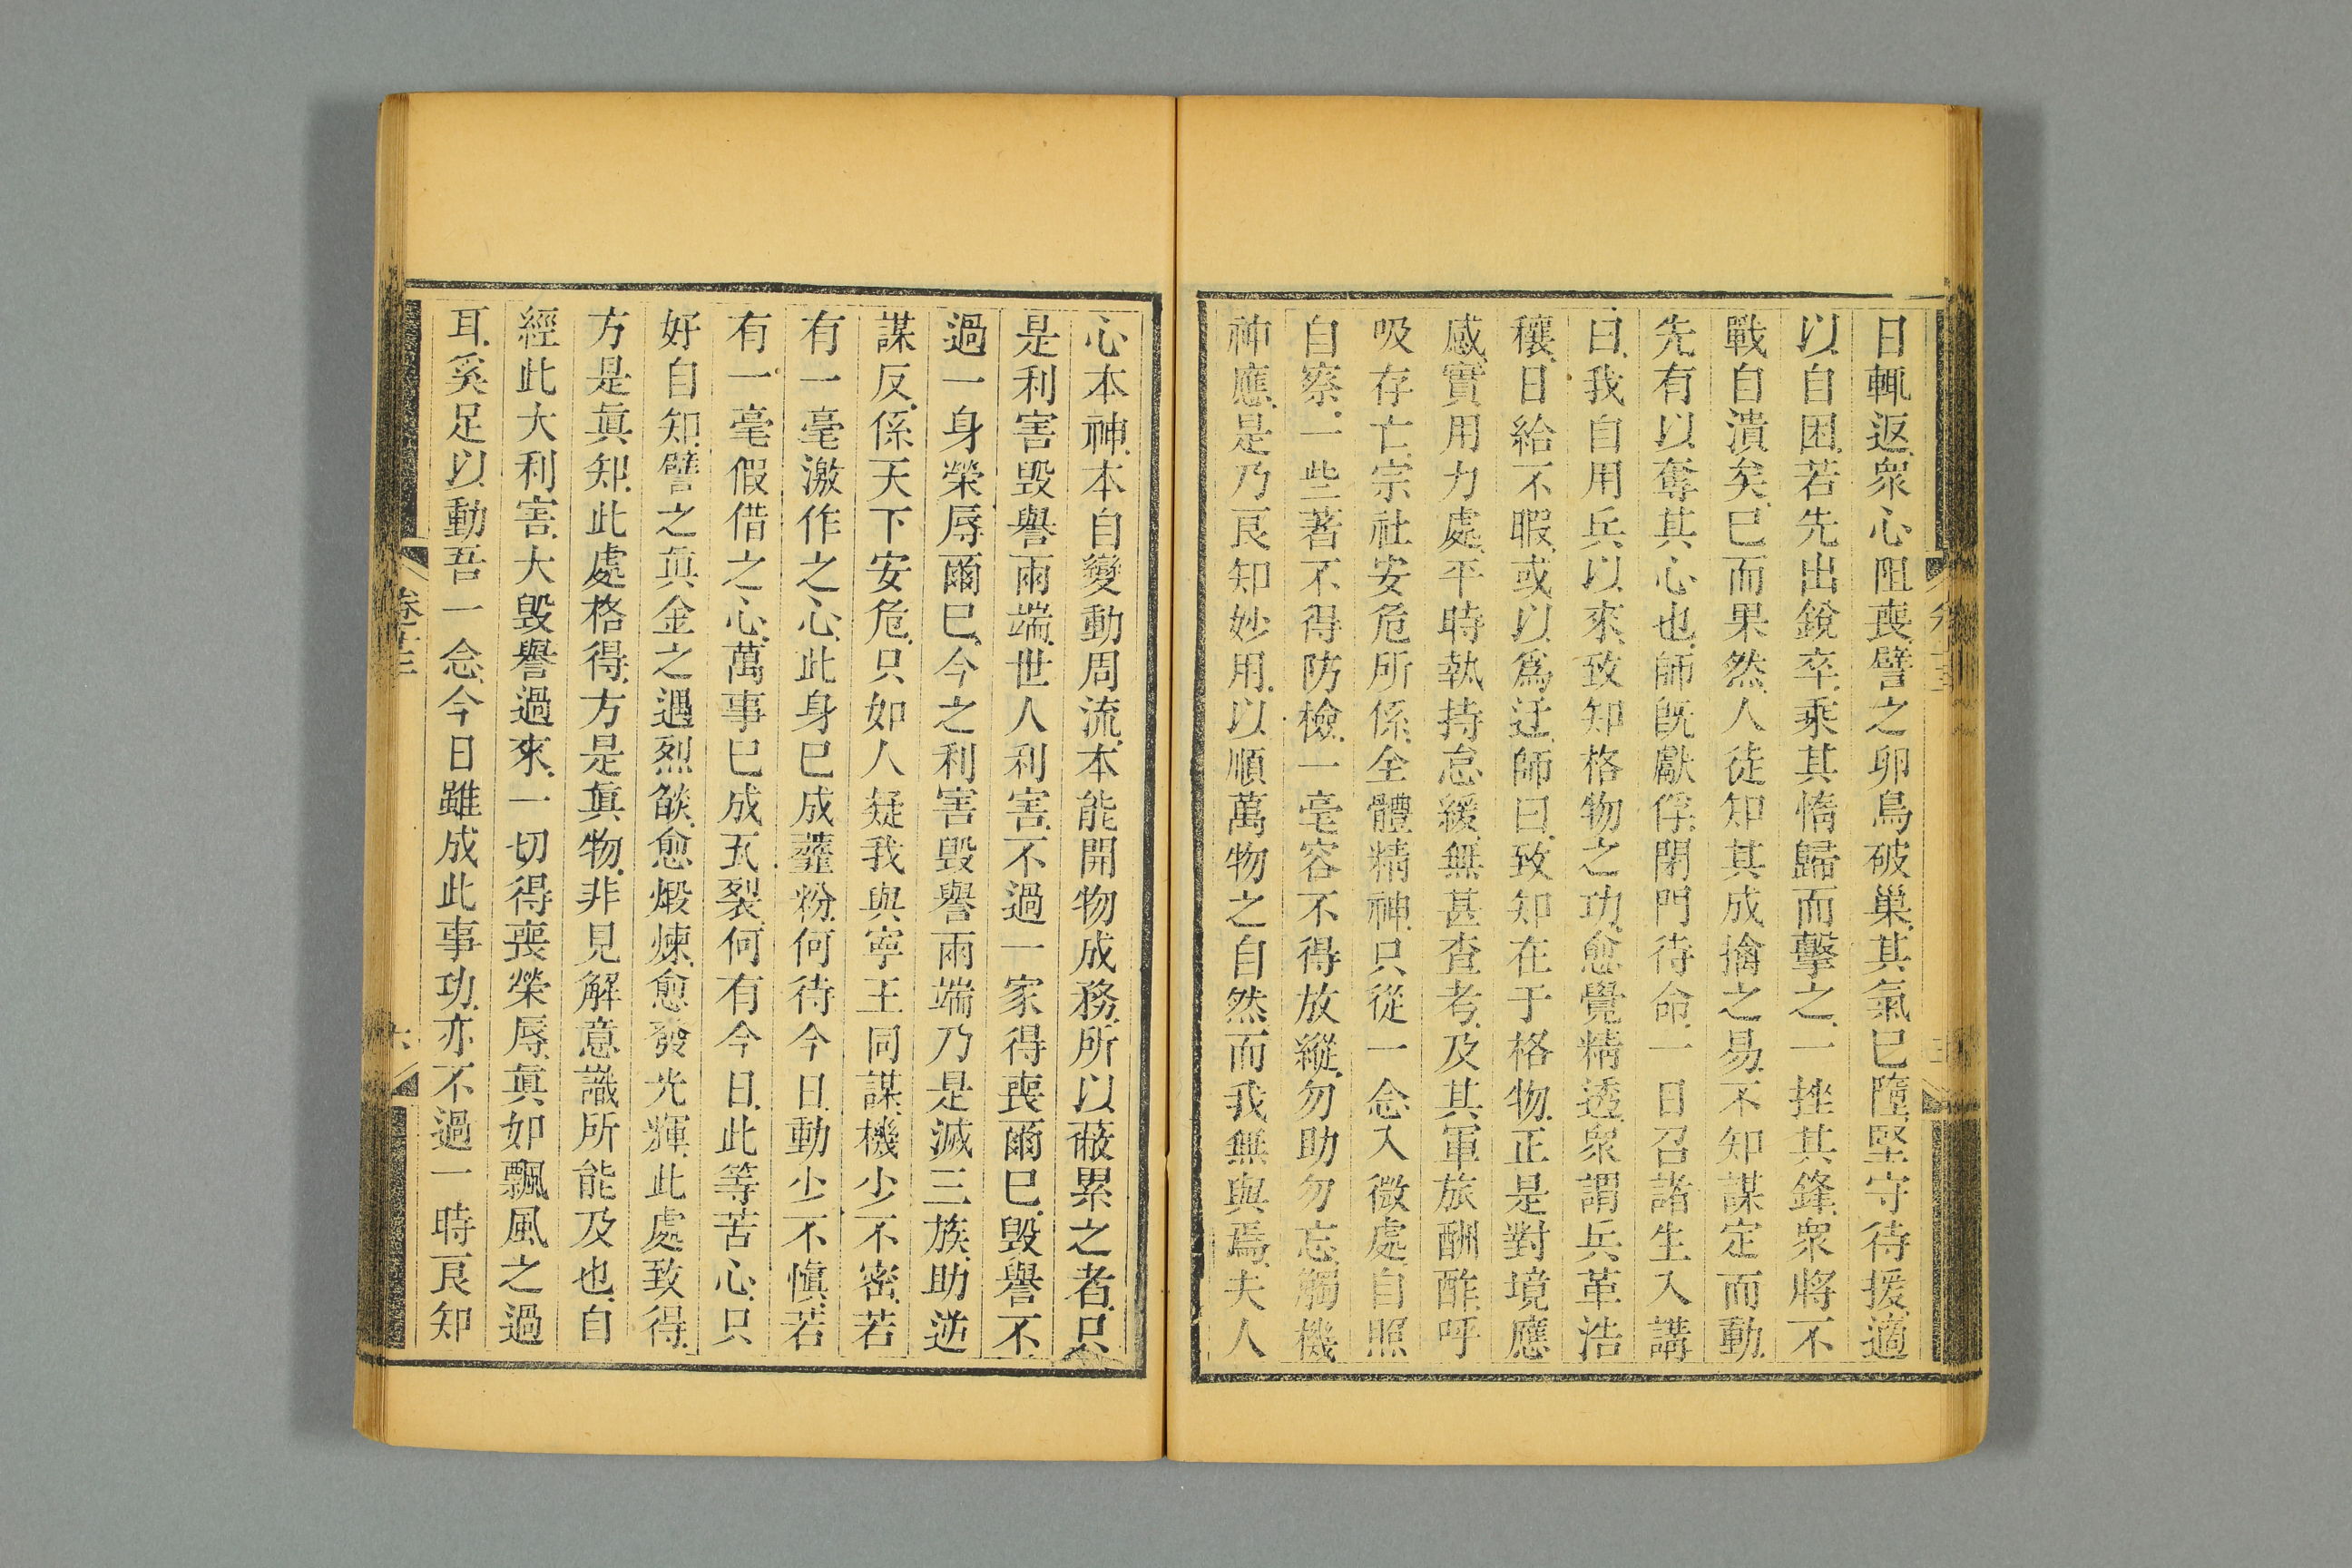 日輒返衆心阻喪譬之卵鳥破巢其氣已墮堅守待援適
以自困若先出銳卒乘其惰歸而擊之一挫其鋒衆將不
戰自潰矣已而果然人徒知其成擒之易不知謀定而動
先有以奪其心也師旣獻俘閉門待命一日召諸生入講
曰我自用兵以來致知格物之功愈覺精透衆謂兵革浩
穰日給不暇或以爲迂師曰致知在于格物正是對境應
感實用力處平時執持怠緩無甚查考及其軍旅酬酢呼
吸存亡宗社安危所係全體精神只從一念入微處自照
自察一些著不得防檢一毫容不得放縱勿助勿忘觸機
神應是乃良知妙用以順萬物之自然而我無與焉夫人
心本神本自變動周流本能開物成務所以蔽累之者只
是利害毀譽兩端世人利害不過一家得喪爾已毀譽不
過一身榮辱爾已今之利害毀譽兩端乃是滅三族助逆
謀反係天下安危只如人疑我與寧王同謀機少不密若
有一毫激作之心此身已成虀粉何待今日動少不愼若
有一毫假借之心萬事已成瓦裂何有今日此等苦心只
好自知譬之眞金之遇烈燄愈煅煉愈發光輝此處致得
方是眞知此處格得方是眞物非見解意識所能及也自
經此大利害大毀譽過來一切得喪榮辱眞如飄風之過
耳奚足以動吾一念今日雖成此事功亦不過一時良知
卷十三
六